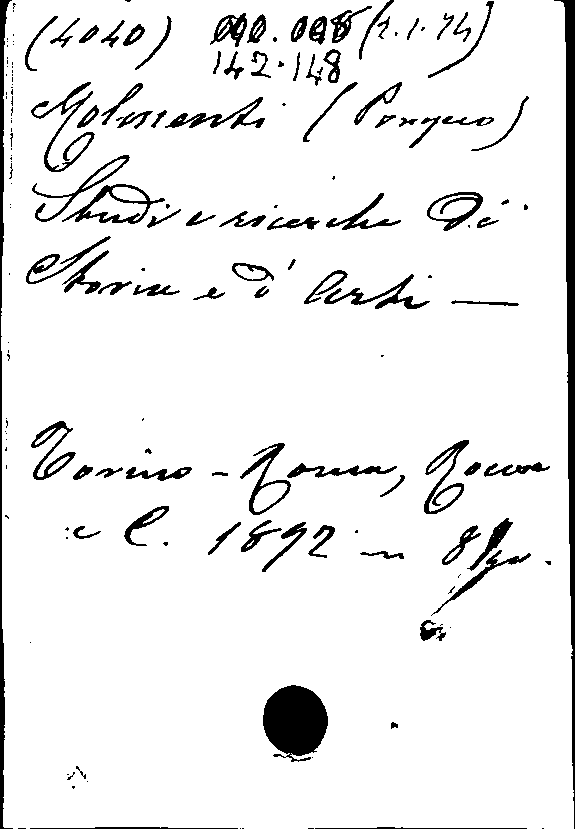 (4040) [2.1.74]
142.148
Molossenti (Pompeo)
Studi e ricerche di
Storia e d'Arti —
Torino - Roma, Roux
e C. 1892 in 8º